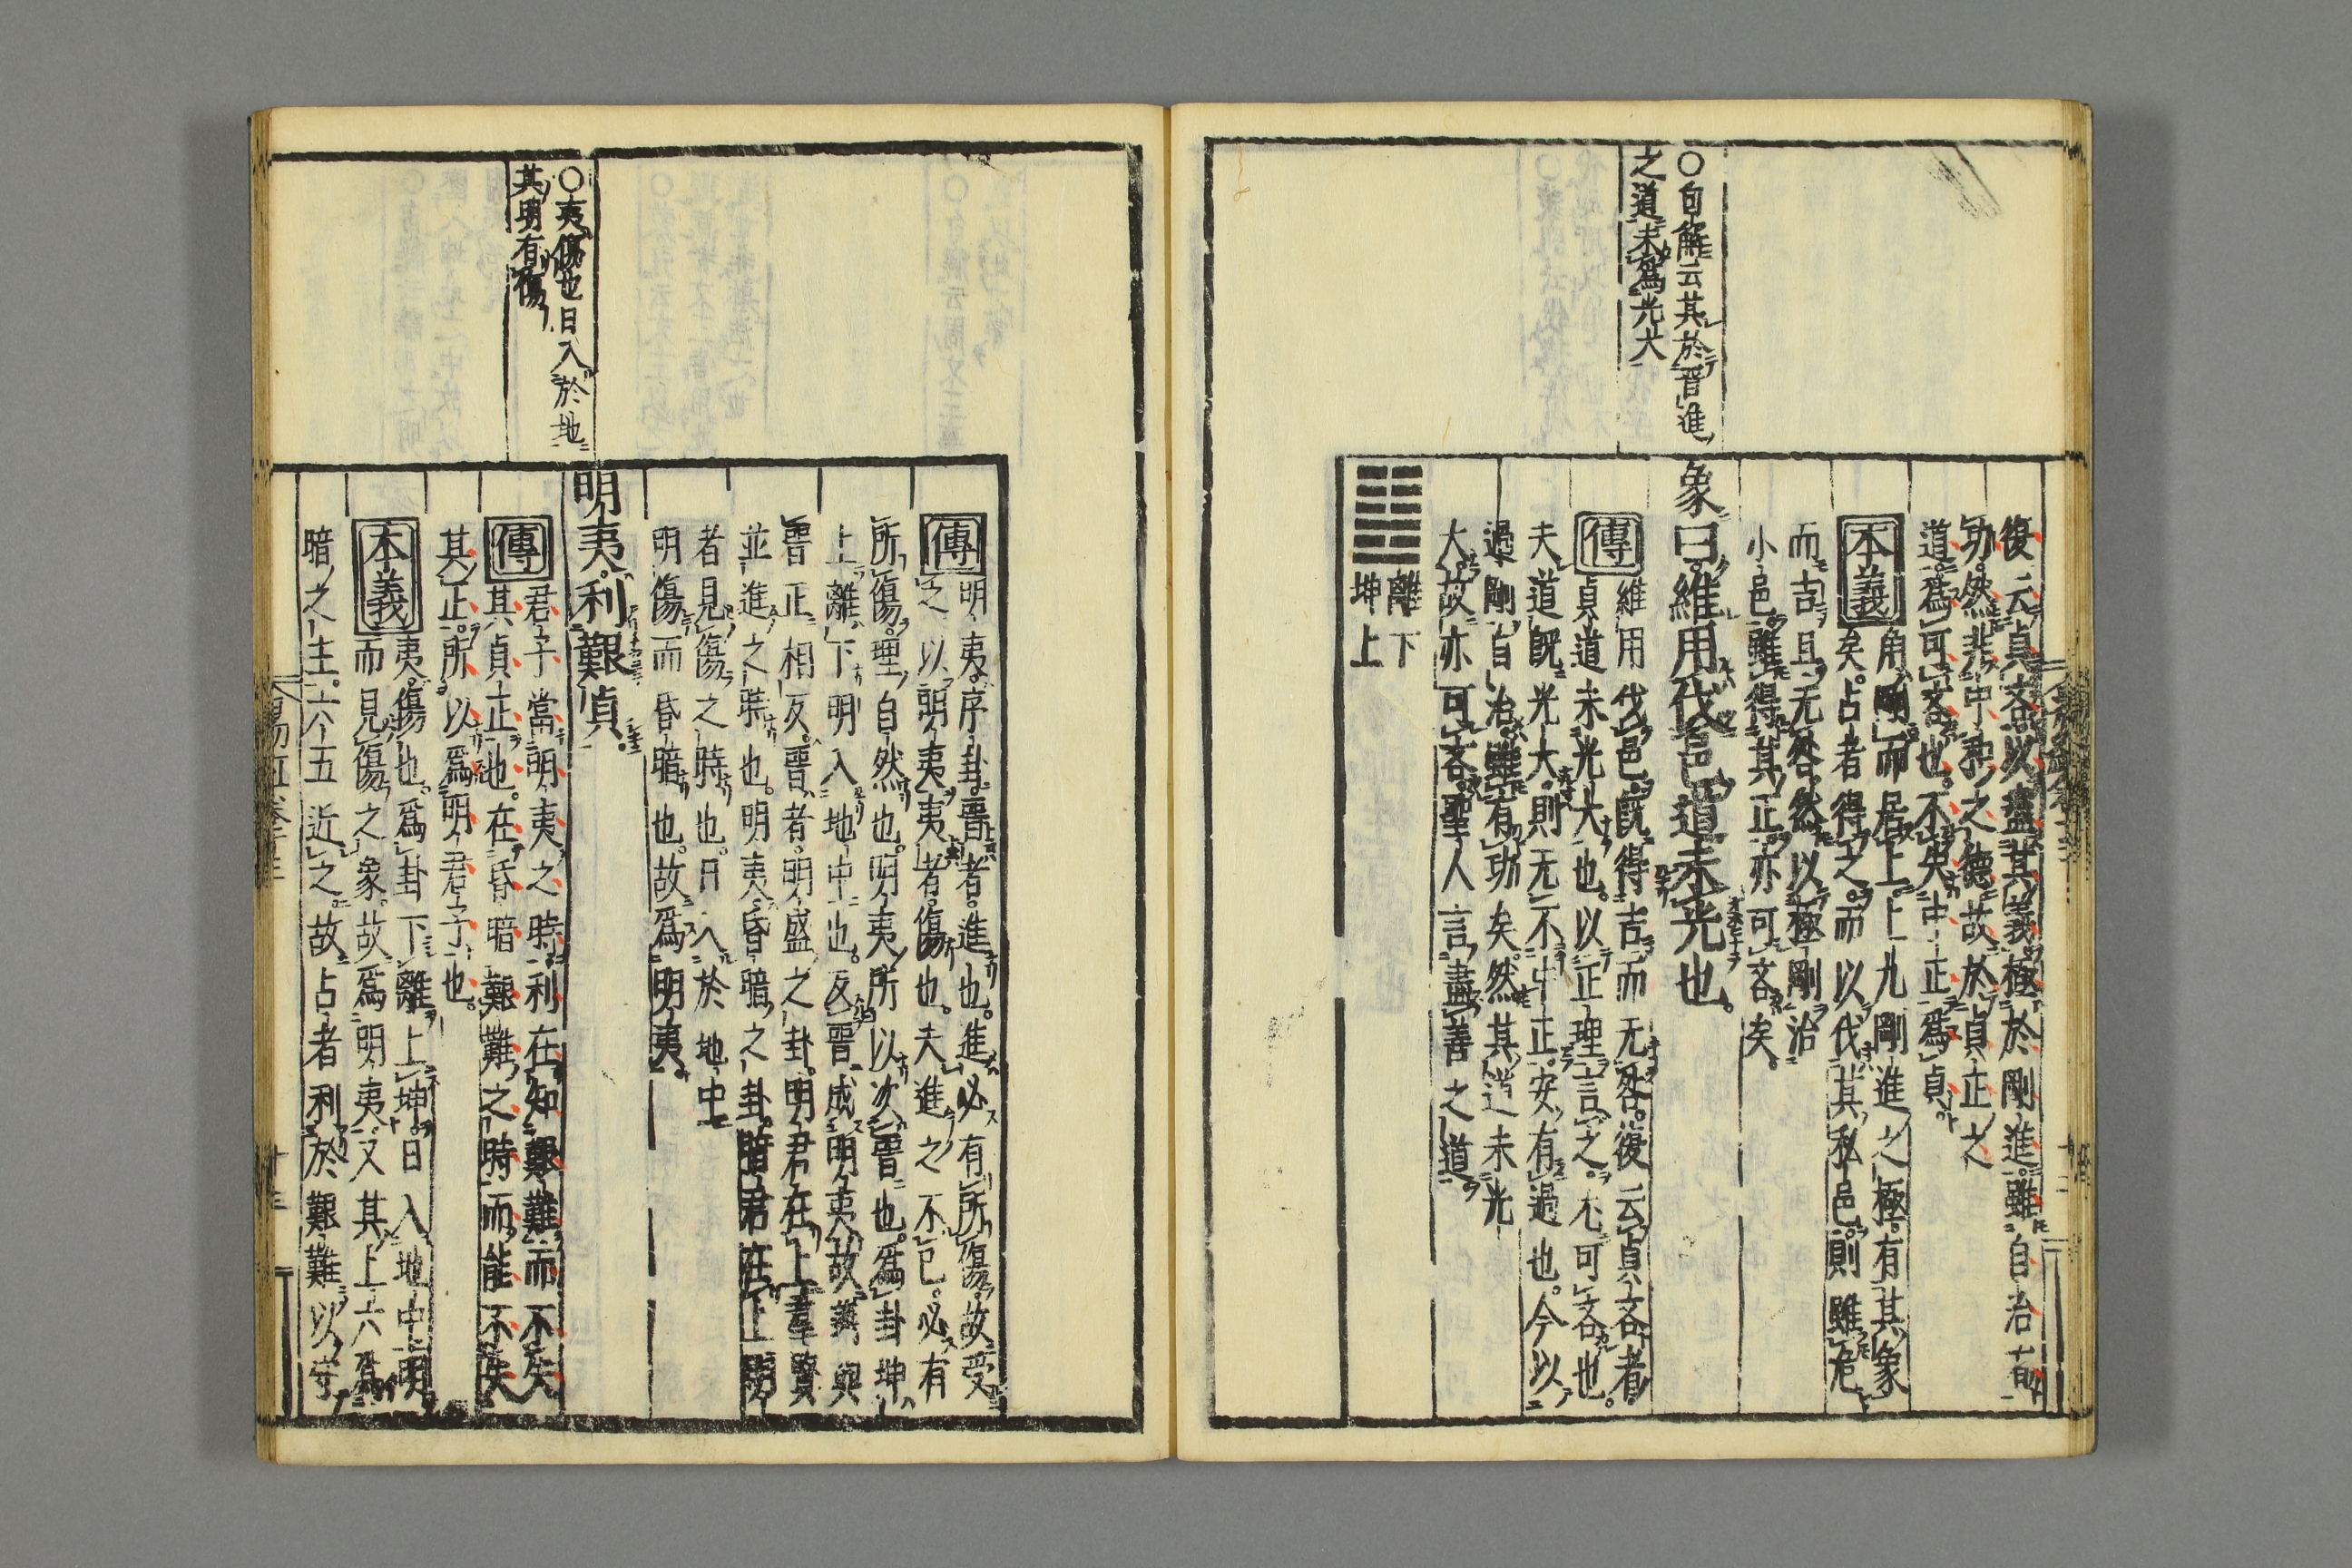 〇自解云其於晋進
之道未爲光大
復云貞吝以盡其義極於剛進雖自治有
功然非中和之德故於貞正之
道爲可吝也不失中正爲貞
本義 角剛而居上上九剛進之極有其象
矣占者得之而以伐其私邑則雖危
而吉且无咎然以極剛治
小邑雖得其正亦可吝矣
象曰維用伐邑道未光也
傳 維用伐邑既得吉而无咎復云貞吝者
貞道未光大也以正理言之尤可吝也
夫道既光大則无不中正安有過也今以
過剛自治雖有功矣然其道未光
大故亦可吝聖人言盡善之道
離下
坤上
〇夷傷也日入於地
其明有傷
傳 明夷序卦晋者進也進必有所傷故受
之以明夷夷者傷也夫進之不已必有
所傷理自然也明夷所以次晋也爲卦坤
上離下明入地中也反晋成明夷故義與
晋正相反晋者明盛之卦明君在上羣賢
並進之時也明夷昏暗之卦暗君在上明
者見傷之時也日入於地中
明傷而昏暗也故爲明夷
明夷利艱貞
傳 君子當明夷之時利在知艱難而不失
其貞正也在昏暗艱難之時而能不失
其正所以爲明君子也
本義 夷傷也爲卦下離上坤日入地中明
而見傷之象故爲明夷又其上六爲
暗之主六五近之故占者利於艱難以守